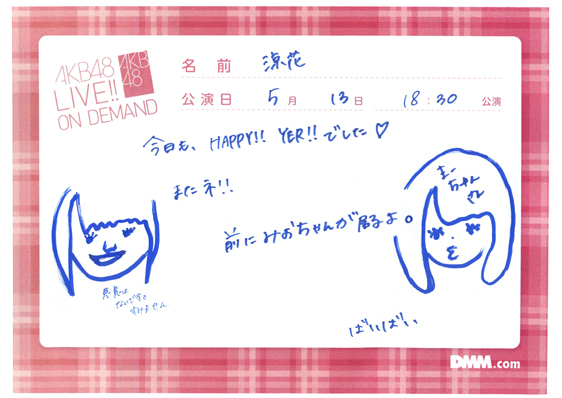 AKB48
LIVE!!
ON DEMAND
AKB
48
名前 涼花
公演日 5月 13日 18:30 公演
今日も、HAPPY!! YER!!でした♡
またネ!!
前にみおちゃんが居るよ。
悪気は
ないです
すみません
ばいばい
DMM.com